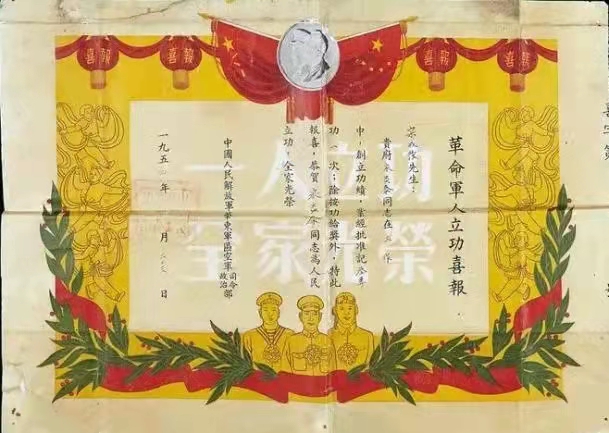 喜報
喜報
喜報
喜報
一人立功
全家光榮
革命軍人立功喜報
先生：
貴府 同志在 作
中，創立功績，業經批准記 等
功一次；除按功給獎外，特此
報喜，恭賀 同志為人民
立功，全家光榮
中國人民解放軍華東軍區空軍 司令部
政治
一九五 年 月 日